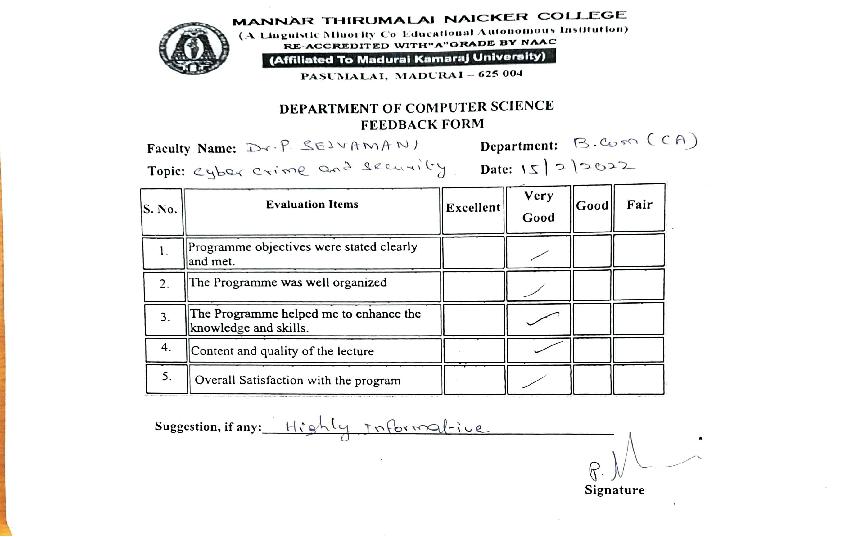 MANNAR THIRUMALAI NAICKER COLLEGE
(A Linguistic Minority Co Educational Autonomous Institution)
RE-ACCREDITED WITH "A" GRADE BY NAAC
(Affiliated To Madurai Kamaraj University)
PASUMALAI, MADURAI – 625 004
DEPARTMENT OF COMPUTER SCIENCE
FEEDBACK FORM
Faculty Name: Dr. P SELVAMANI Department: B.Com (CA)
Topic: Cyber Crime and Security Date: 15/2/2022
S. No. Evaluation Items Excellent Very Good Good Fair
1. Programme objectives were stated clearly
and met.
2. The Programme was well organized
3. The Programme helped me to enhance the
knowledge and skills.
4. Content and quality of the lecture
5. Overall Satisfaction with the program
Suggestion, if any: Highly Informative.
Signature